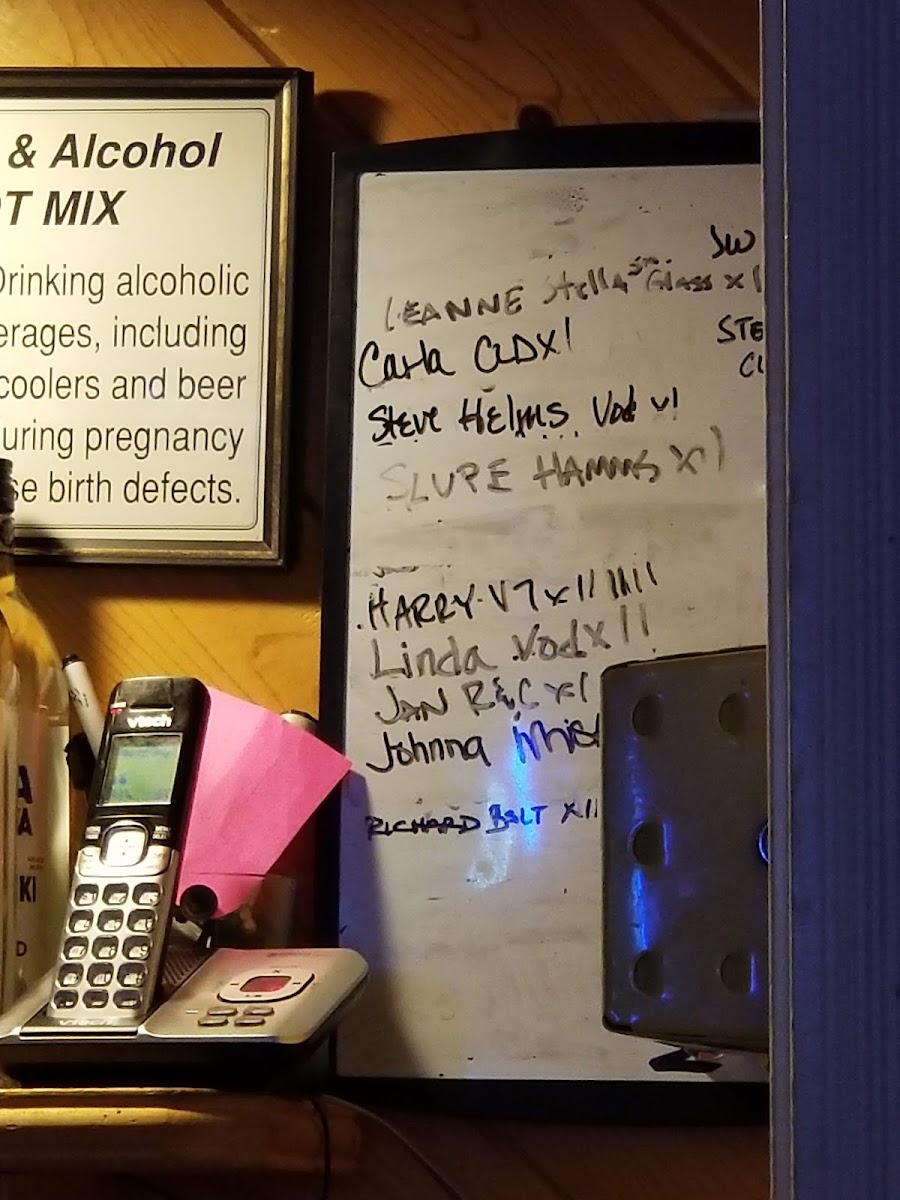 & Alcohol
OT MIX
Drinking alcoholic
erages, including
coolers and beer
uring pregnancy
se birth defects.
SW
LEANNE Stella Sm. Glass x|
STE
Carla CLDx|
CL
Steve Helms Vod x|
SLUPE HAMMS x|
HARRY V7 x|| ||||
Linda Vod x||
JAN R&C x|
Johnna
RICHARD BOLT x||
vtech
A
TA
KI
D
vtech